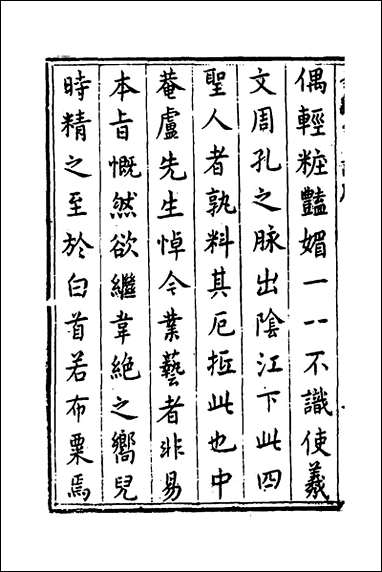 偶輕粧豔媚一一不識使羲
文周孔之脉出陰江下此四
聖人者孰料其厄抂此也中
菴盧先生悼今業藝者非易
本旨慨然欲繼韋絶之嚮兒
時精之至於白首若布粟焉